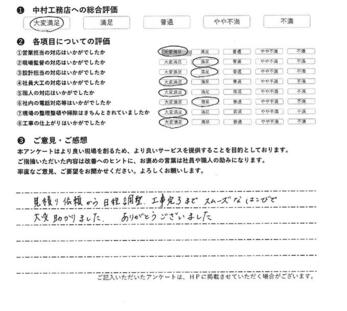 ❶ 中村工務店への総合評価
大変満足 満足 普通 やや不満 不満
❷ 各項目についての評価
①営業担当の対応はいかがでしたか 大変満足 満足 普通 やや不満 不満
②現場監督の対応はいかがでしたか 大変満足 満足 普通 やや不満 不満
③設計担当の対応はいかがでしたか 大変満足 満足 普通 やや不満 不満
④社員大工の対応はいかがでしたか 大変満足 満足 普通 やや不満 不満
⑤職人の対応はいかがでしたか 大変満足 満足 普通 やや不満 不満
⑥社内の電話対応等はいかがでしたか 大変満足 満足 普通 やや不満 不満
⑦現場の整理整頓や掃除はきちんとされていましたか 大変満足 満足 普通 やや不満 不満
⑧工事の仕上がりはいかがでしたか 大変満足 満足 普通 やや不満 不満
❸ ご意見・ご感想
本アンケートはより良い現場を創るため、より良いサービスを提供することを目的としております。
ご指摘いただいた内容は改善へのヒントに、お褒めの言葉は社員や職人の励みになります。
率直なご意見、ご要望をお聞かせください。よろしくお願いします。
見積り依頼から日程調整、工事完了までスムーズなはこびで
大変助かりました。ありがとうございました
ご記入いただいたアンケートは、HPに掲載させていただく場合がございます。